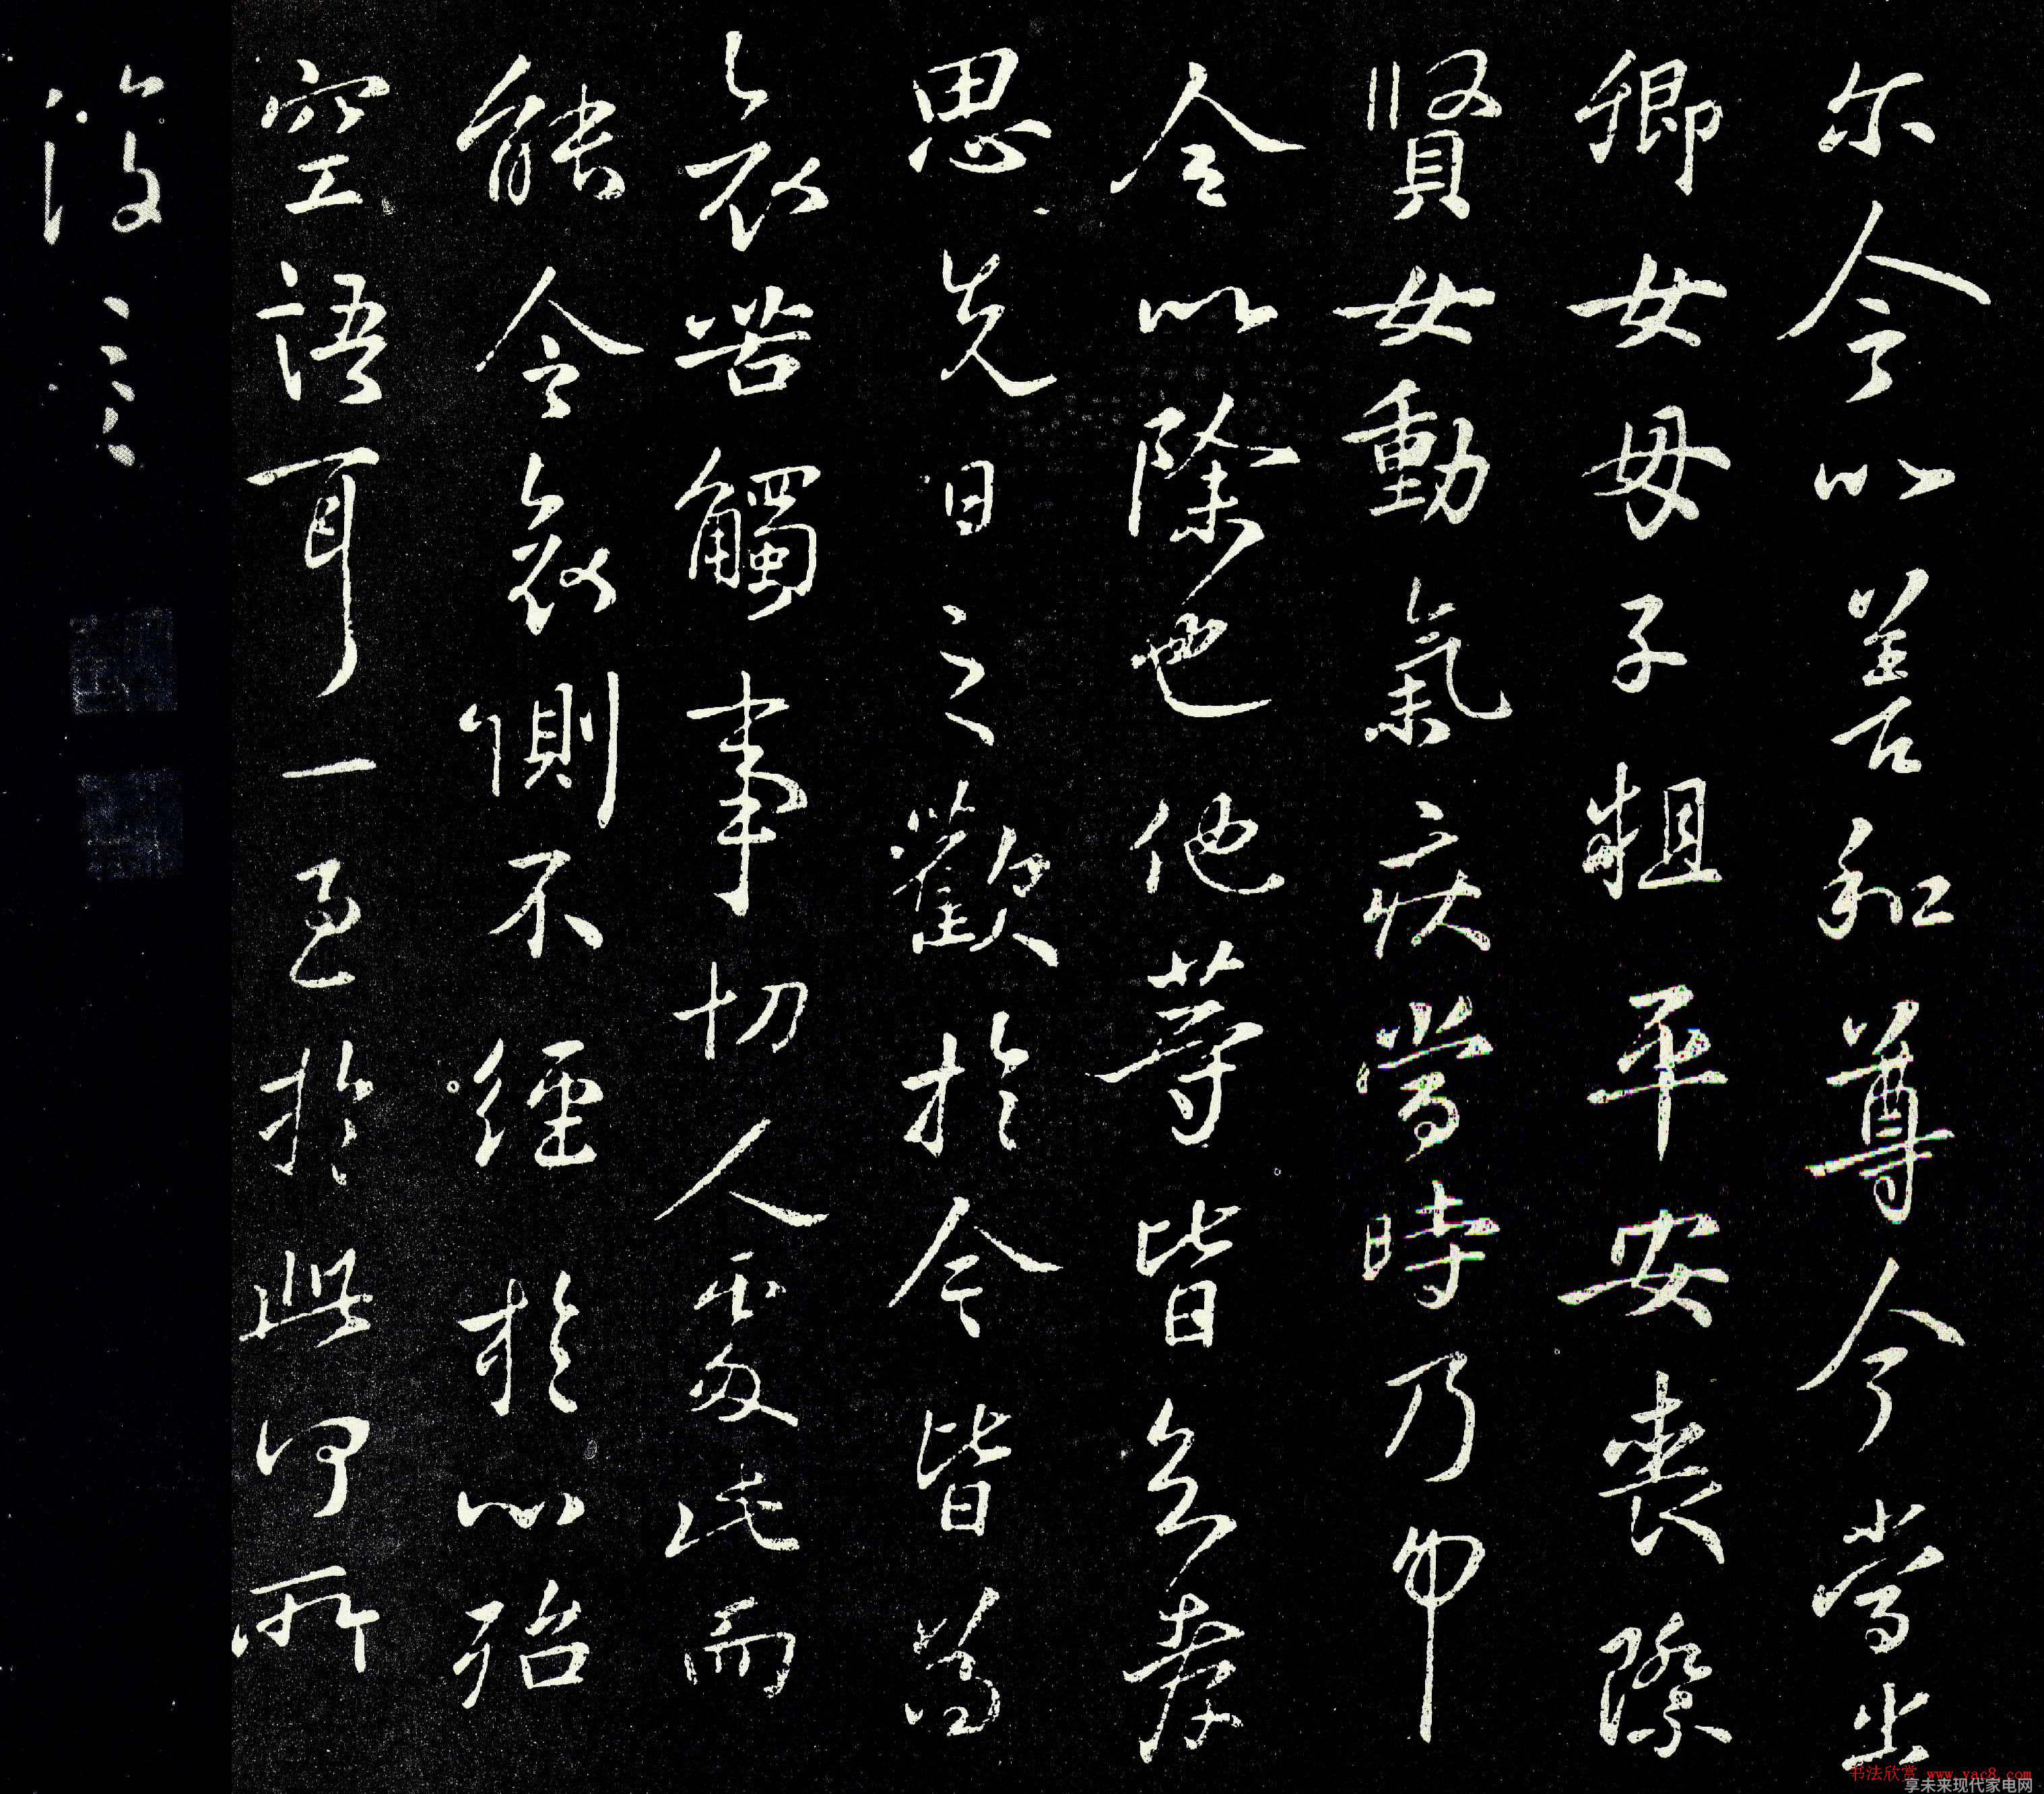 尔今以善和尊今當出
卿女女母子粗平安喪際
賢女動氣疾當時乃
令以除也他等皆
思先日之歡於今皆為
哀苦觸事切人此而
能令哀惻不經於心殆
空語耳一至於此何所
復言
书法欣赏 www.yac8.com
享未来现代家电网